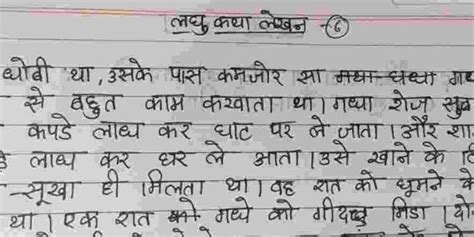 लघु कथा लेखन -6
धोबी था, उसके पास कमजोर सा
से बहुत काम करवाता था। गधा रोज सुब
कपडे लाध कर घाट पर ले जाता। और शा
लाध कर घर ले आता। उसे खाने के
सूखा ही मिलता था। वह रात को घूमने
था। एक रात गधे को गीदड़ मिला।